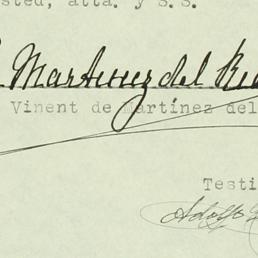 sted, atta. y S.S.
Martinez del Rio
Vinent de Martínez del
Testi
Adolfo